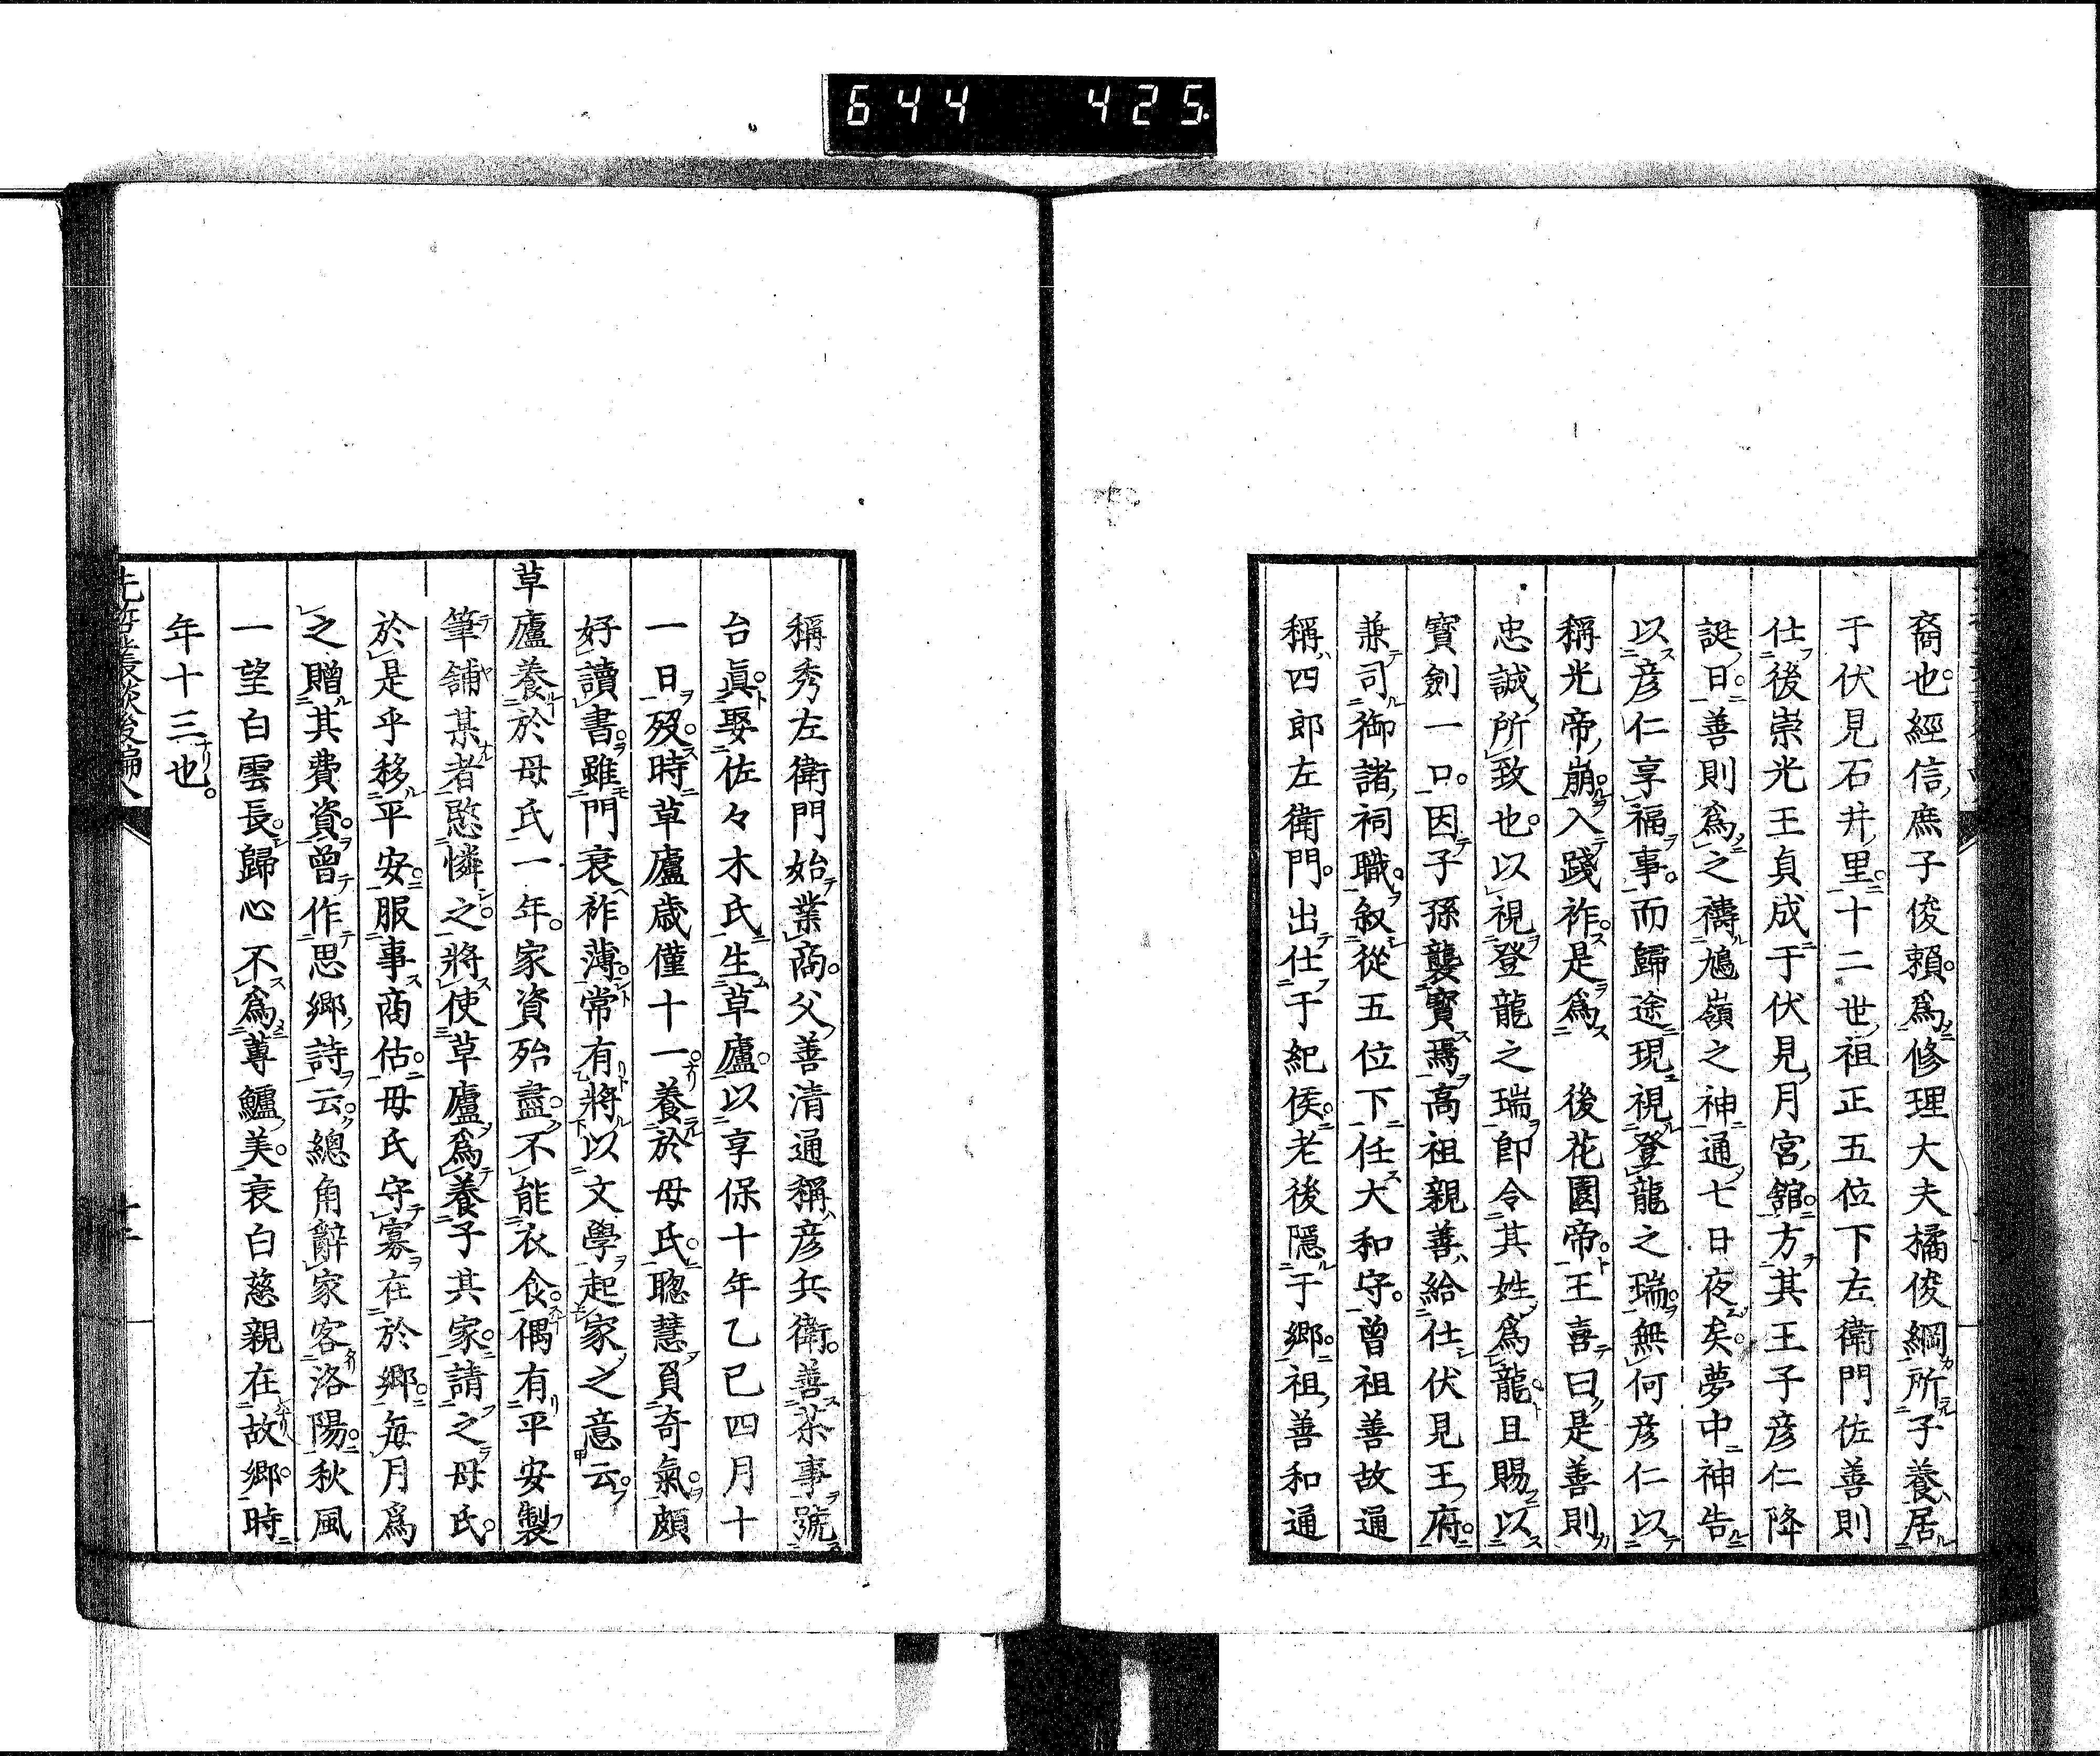 644 425.
裔也。經信、庶子俊賴。爲修理大夫橘俊綱所子養、居
于伏見石井、里。十二世、祖正五位下左衞門佐善則
仕後崇光王貞成于伏見、月宮、舘。方其王子彦仁降
誕、日。善則爲之禱鳩嶺之神通七日夜矣。夢中神告
以彦仁享福事。而歸途現視登龍之瑞。無何彦仁以
稱光帝、崩。入踐祚。是爲 後花園帝。王喜曰、是善則
忠誠、所致也。以視登龍之瑞。卽令其姓爲龍。且賜以
寶劍一口。因子孫襲寶焉。高祖親善、給仕伏見王、府。
兼司御諸、祠職。叙從五位下任大和守。曾祖善故通
稱、四郎左衞門。出仕于紀侯。老後隱于鄉。祖、善和通
稱秀左衞門始業商。父、善清通稱、彦兵衞。善茶事號
台眞。娶佐々木氏生草廬。以享保十年乙巳四月十
一日歿。時草廬歲僅十一。養於母氏。聰慧負奇氣。頗
好讀書。雖門衰祚薄。常有將以文學起家之意云。
草廬養於母氏一年。家資殆盡。不能衣食。偶有平安製
筆舖某者愍憐之。將使草廬爲養子其家。請之母氏。
於是乎移平安。服事商估。母氏守寡在於鄉。每月爲
之贈其費資。曾作思鄉、詩云。總角辭家客洛陽。秋風
一望白雲長。歸心不爲蓴鱸美。衰白慈親在故鄉。時
年十三也。
先哲叢談後編八
十二